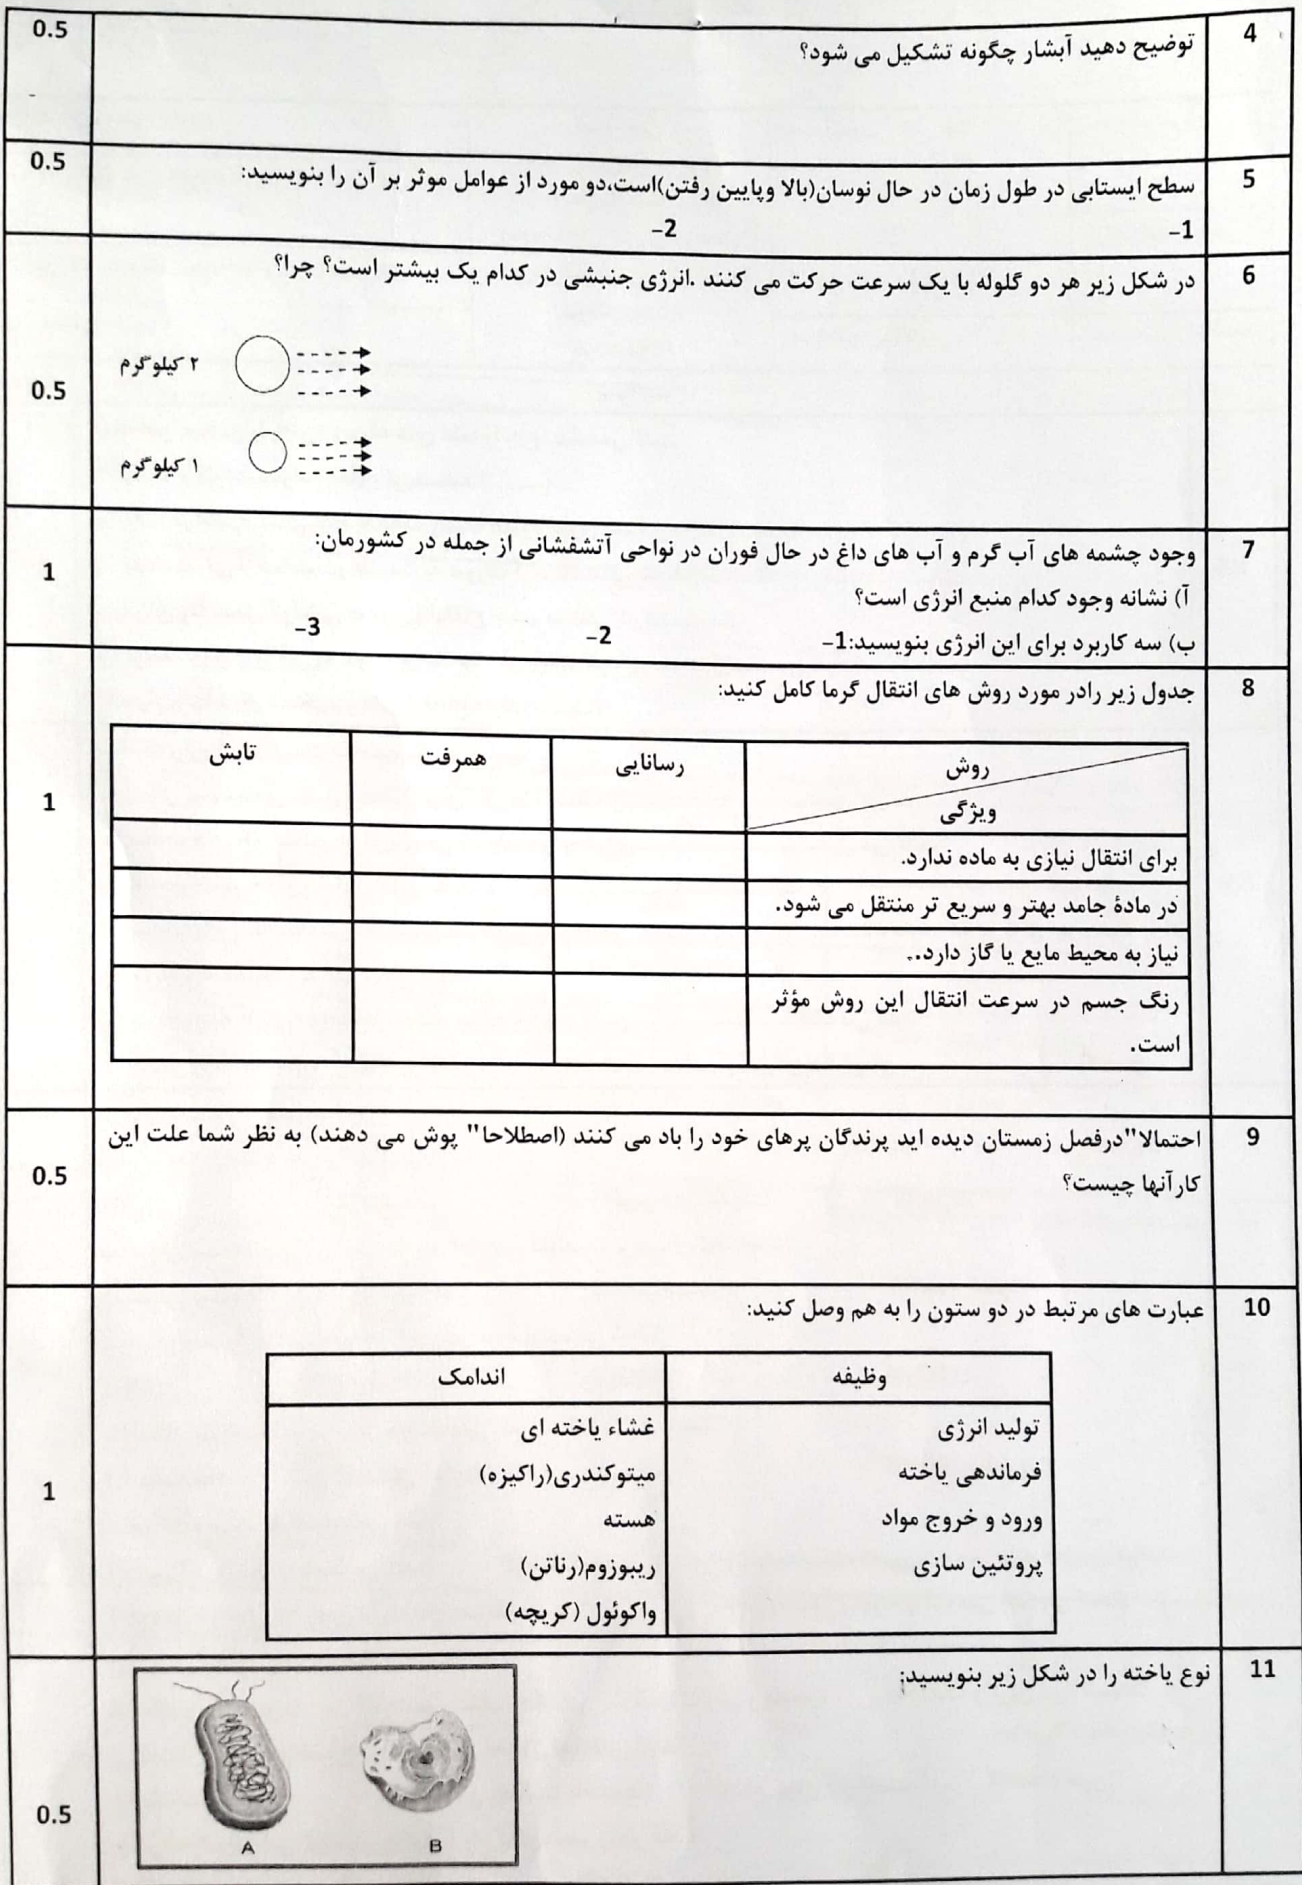 4
توضیح دهید آبشار چگونه تشکیل می شود؟
0.5
5
سطح ایستابی در طول زمان در حال نوسان(بالا وپایین رفتن)است،دو مورد از عوامل موثر بر آن را بنویسید:
1- 2-
0.5
6
در شکل زیر هر دو گلوله با یک سرعت حرکت می کنند .انرژی جنبشی در کدام یک بیشتر است؟ چرا؟
۲ کیلوگرم
۱ کیلوگرم
0.5
7
وجود چشمه های آب گرم و آب های داغ در حال فوران در نواحی آتشفشانی از جمله در کشورمان:
آ) نشانه وجود کدام منبع انرژی است؟
ب) سه کاربرد برای این انرژی بنویسید:1- 2- 3-
1
8
جدول زیر رادر مورد روش های انتقال گرما کامل کنید:
روش
ویژگی
رسانایی
همرفت
تابش
برای انتقال نیازی به ماده ندارد.
در مادۀ جامد بهتر و سریع تر منتقل می شود.
نیاز به محیط مایع یا گاز دارد..
رنگ جسم در سرعت انتقال این روش مؤثر
است.
1
9
احتمالا"درفصل زمستان دیده اید پرندگان پرهای خود را باد می کنند (اصطلاحا" پوش می دهند) به نظر شما علت این
کارآنها چیست؟
0.5
10
عبارت های مرتبط در دو ستون را به هم وصل کنید:
وظیفه اندامک
تولید انرژی غشاء یاخته ای
فرماندهی یاخته میتوکندری(راکیزه)
ورود و خروج مواد هسته
پروتئین سازی ریبوزوم(رناتن)
واکوئول (کریچه)
1
11
نوع یاخته را در شکل زیر بنویسید:
A B
0.5